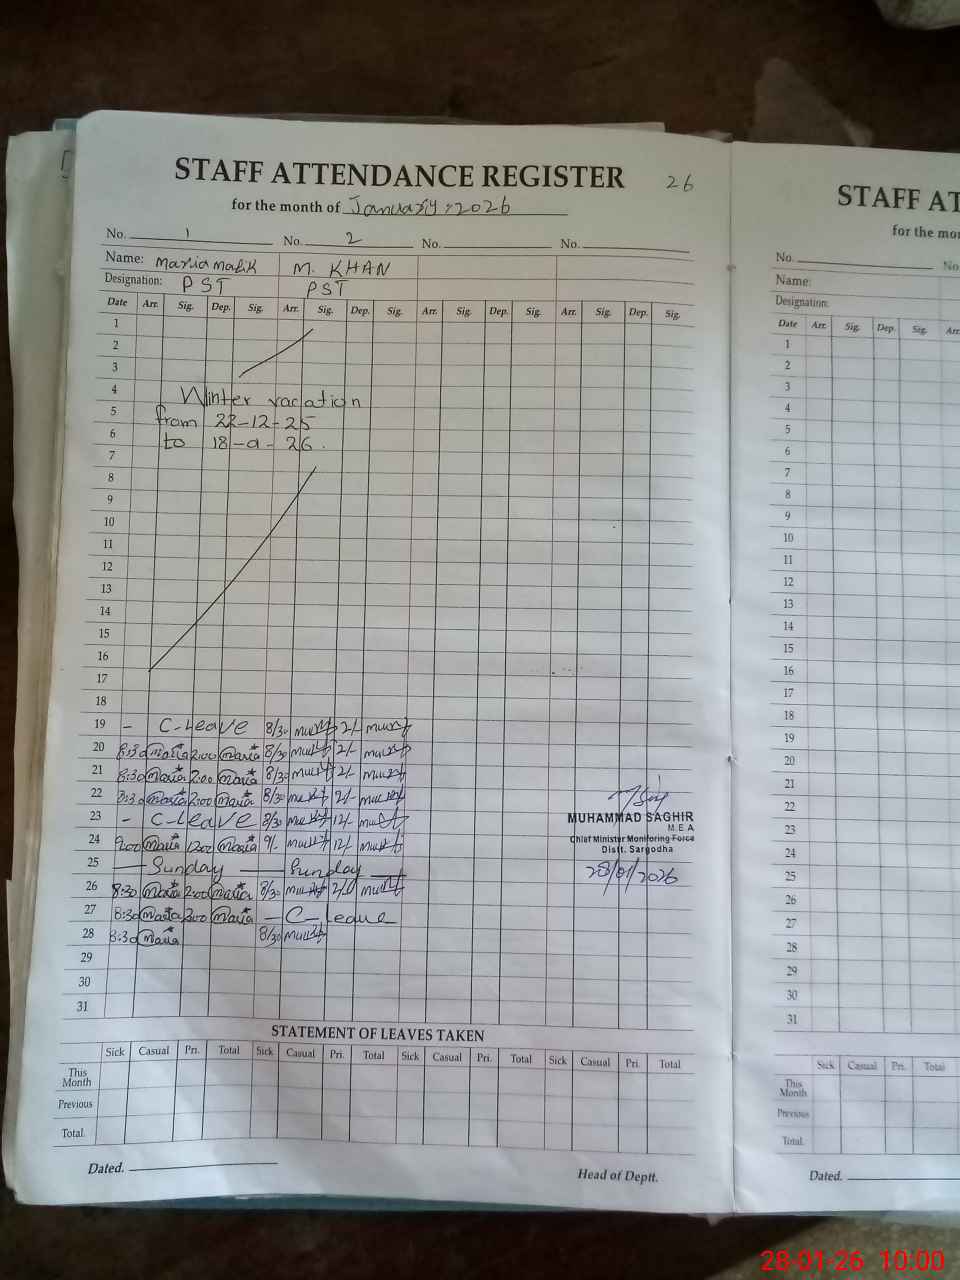 STAFF ATTENDANCE REGISTER 26
for the month of January, 2026
No. 1 No. 2 No. No.
Name: Maria malik M. KHAN
Designation: PST PST
Date Arr. Sig. Dep. Sig. Arr. Sig. Dep. Sig. Arr. Sig. Dep. Sig. Arr. Sig. Dep. Sig.
1
2
3
4 Winter vacation
5 from 22-12-25
6 to 18-a-26.
7
8
9
10
11
12
13
14
15
16
17
18
19 - C-Leave 8/30 2/-
20 8:30 Maria 2:00 Maria 8/30 2/-
21 8:30 Maria 2:00 Maria 8/30 2/-
22 8:30 Maria 2:00 Maria 8/30 2/-
23 - C-Leave 8/30 12/-
24 9:00 Maria 1200 Maria 9/- 12/-
25 — Sunday — Sunday —
26 8:30 Maria 2:00 Maria 8/30 2/0
27 8:30 Maria 2:00 Maria - C-Leave
28 8:30 Maria 8/30
29
30
31
MUHAMMAD SAGHIR
M.E.A
Chief Minister Monitoring Force
Distt. Sargodha
28/01/2026
STATEMENT OF LEAVES TAKEN
Sick Casual Pri. Total Sick Casual Pri. Total Sick Casual Pri. Total Sick Casual Pri. Total
This Month
Previous
Total.
Dated. Head of Deptt.
STAFF AT
for the mon
No. No
Name:
Designation:
Date Arr. Sig. Dep. Sig. Arr.
1
2
3
4
5
6
7
8
9
10
11
12
13
14
15
16
17
18
19
20
21
22
23
24
25
26
27
28
29
30
31
Sick Casual Pri. Total
This Month
Previous
Total.
Dated.
28-01-26 10:00